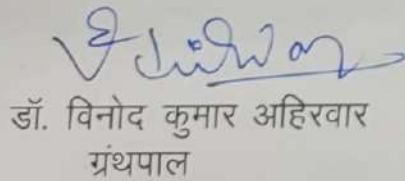 डॉ. विनोद कुमार अहिरवार
ग्रंथपाल